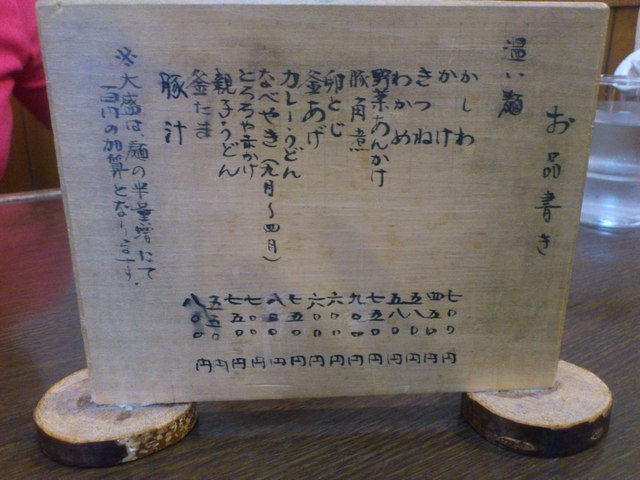 お品書き
温い麺
かしわ 七〇〇円
かけ 四五〇円
きつね 五八〇円
わかめ 五八〇円
野菜あんかけ 七五〇円
豚角煮 九〇〇円
卵とじ 六〇〇円
釜あげ 六〇〇円
カレーうどん 七五〇円
なべやき(九月～四月) 八〇〇円
とろろやまかけ 七〇〇円
親子うどん 七五〇円
釜たま 五五〇円
豚汁 八〇〇円
※大盛は、麺の半量増にて
百円の加算となります。